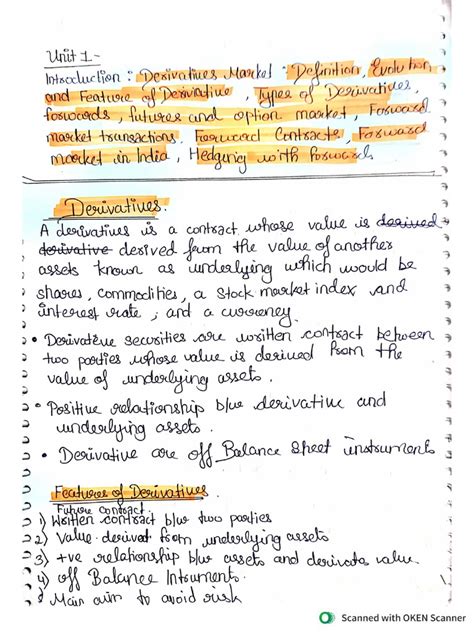 Unit 1-
Introduction : Derivatives Market : Definition, Evolution
and Feature of Derivative , Types of Derivatives,
forwards, futures and option market, Forward
market transactions, Forward Contracts, Forward
market in India, Hedgering with Forwards
Derivatives.
A derivatives is a contract whose value is derived
derivative desived from the value of another
assets known as underlying which would be
shares, commodities, a stock market index and
interest rate, and a currency.
• Derivative securities are written contract between
two parties whose value is derived from the
value of underlying assets.
• Positive relationship b/w derivative and
underlying assets.
• Derivative are off Balance Sheet instruments
Features of Derivatives
Future contract
1) Written contract b/w two parties
2) Value derived from underlying assets
3) +ve relationship b/w assets and derivate value.
4) off Balance Intruments.
5) Main aim to avoid risk
Scanned with OKEN Scanner